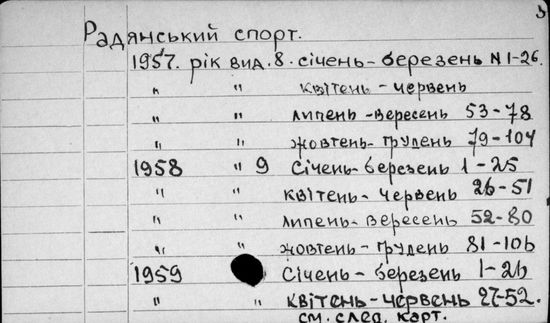 Радянський спорт.
1957. рік вид. 8. січень-березень N 1-26.
" " квітень-червень
" " липень-вересень 53-78
" " жовтень-грудень 79-104
1958 " 9 січень-березень 1-25
" " квітень-червень 26-51
" " липень-вересень 52-80
" " жовтень-грудень 81-106
1959 січень-березень 1-26
" " квітень-червень 27-52.
см. след. карт.